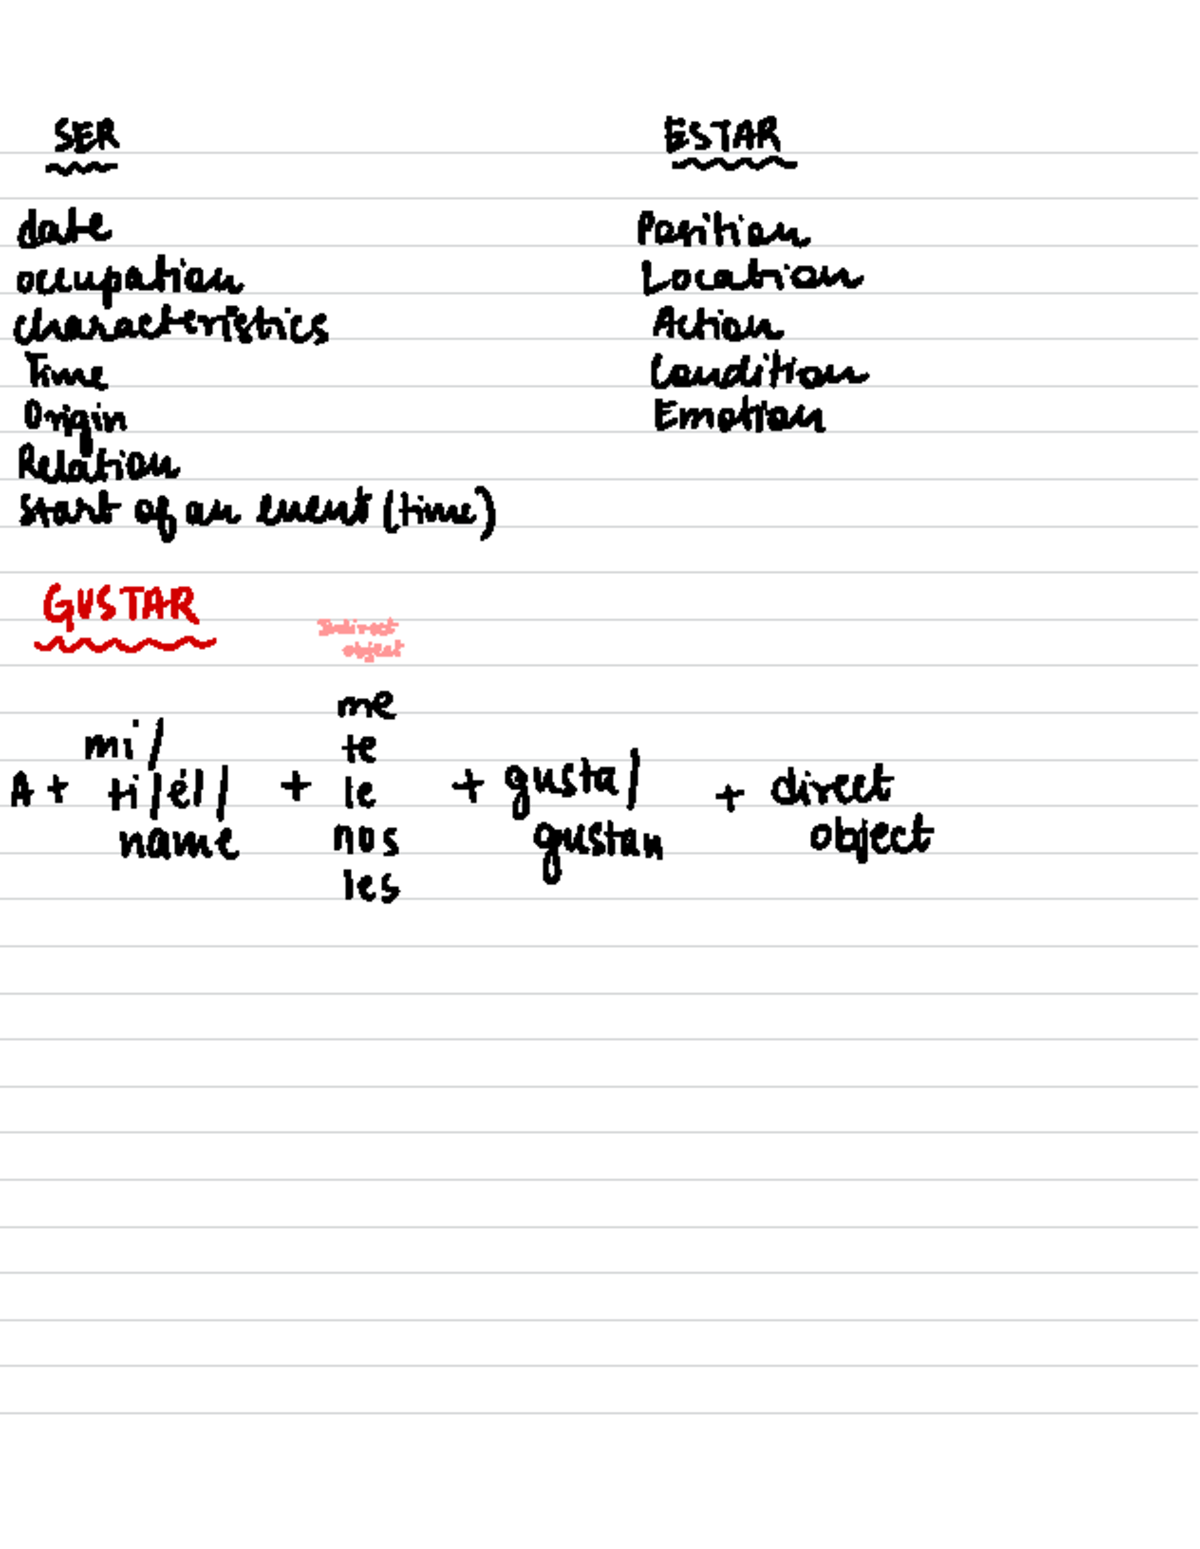 SER
ESTAR
date
Position
occupation
Location
characteristics
Action
Time
Condition
Origin
Emotion
Relation
Start of an event (time)
GUSTAR
Indirect
object
me
mi /
te
A + ti / él / + le + gusta / + direct
name nos gustan object
les